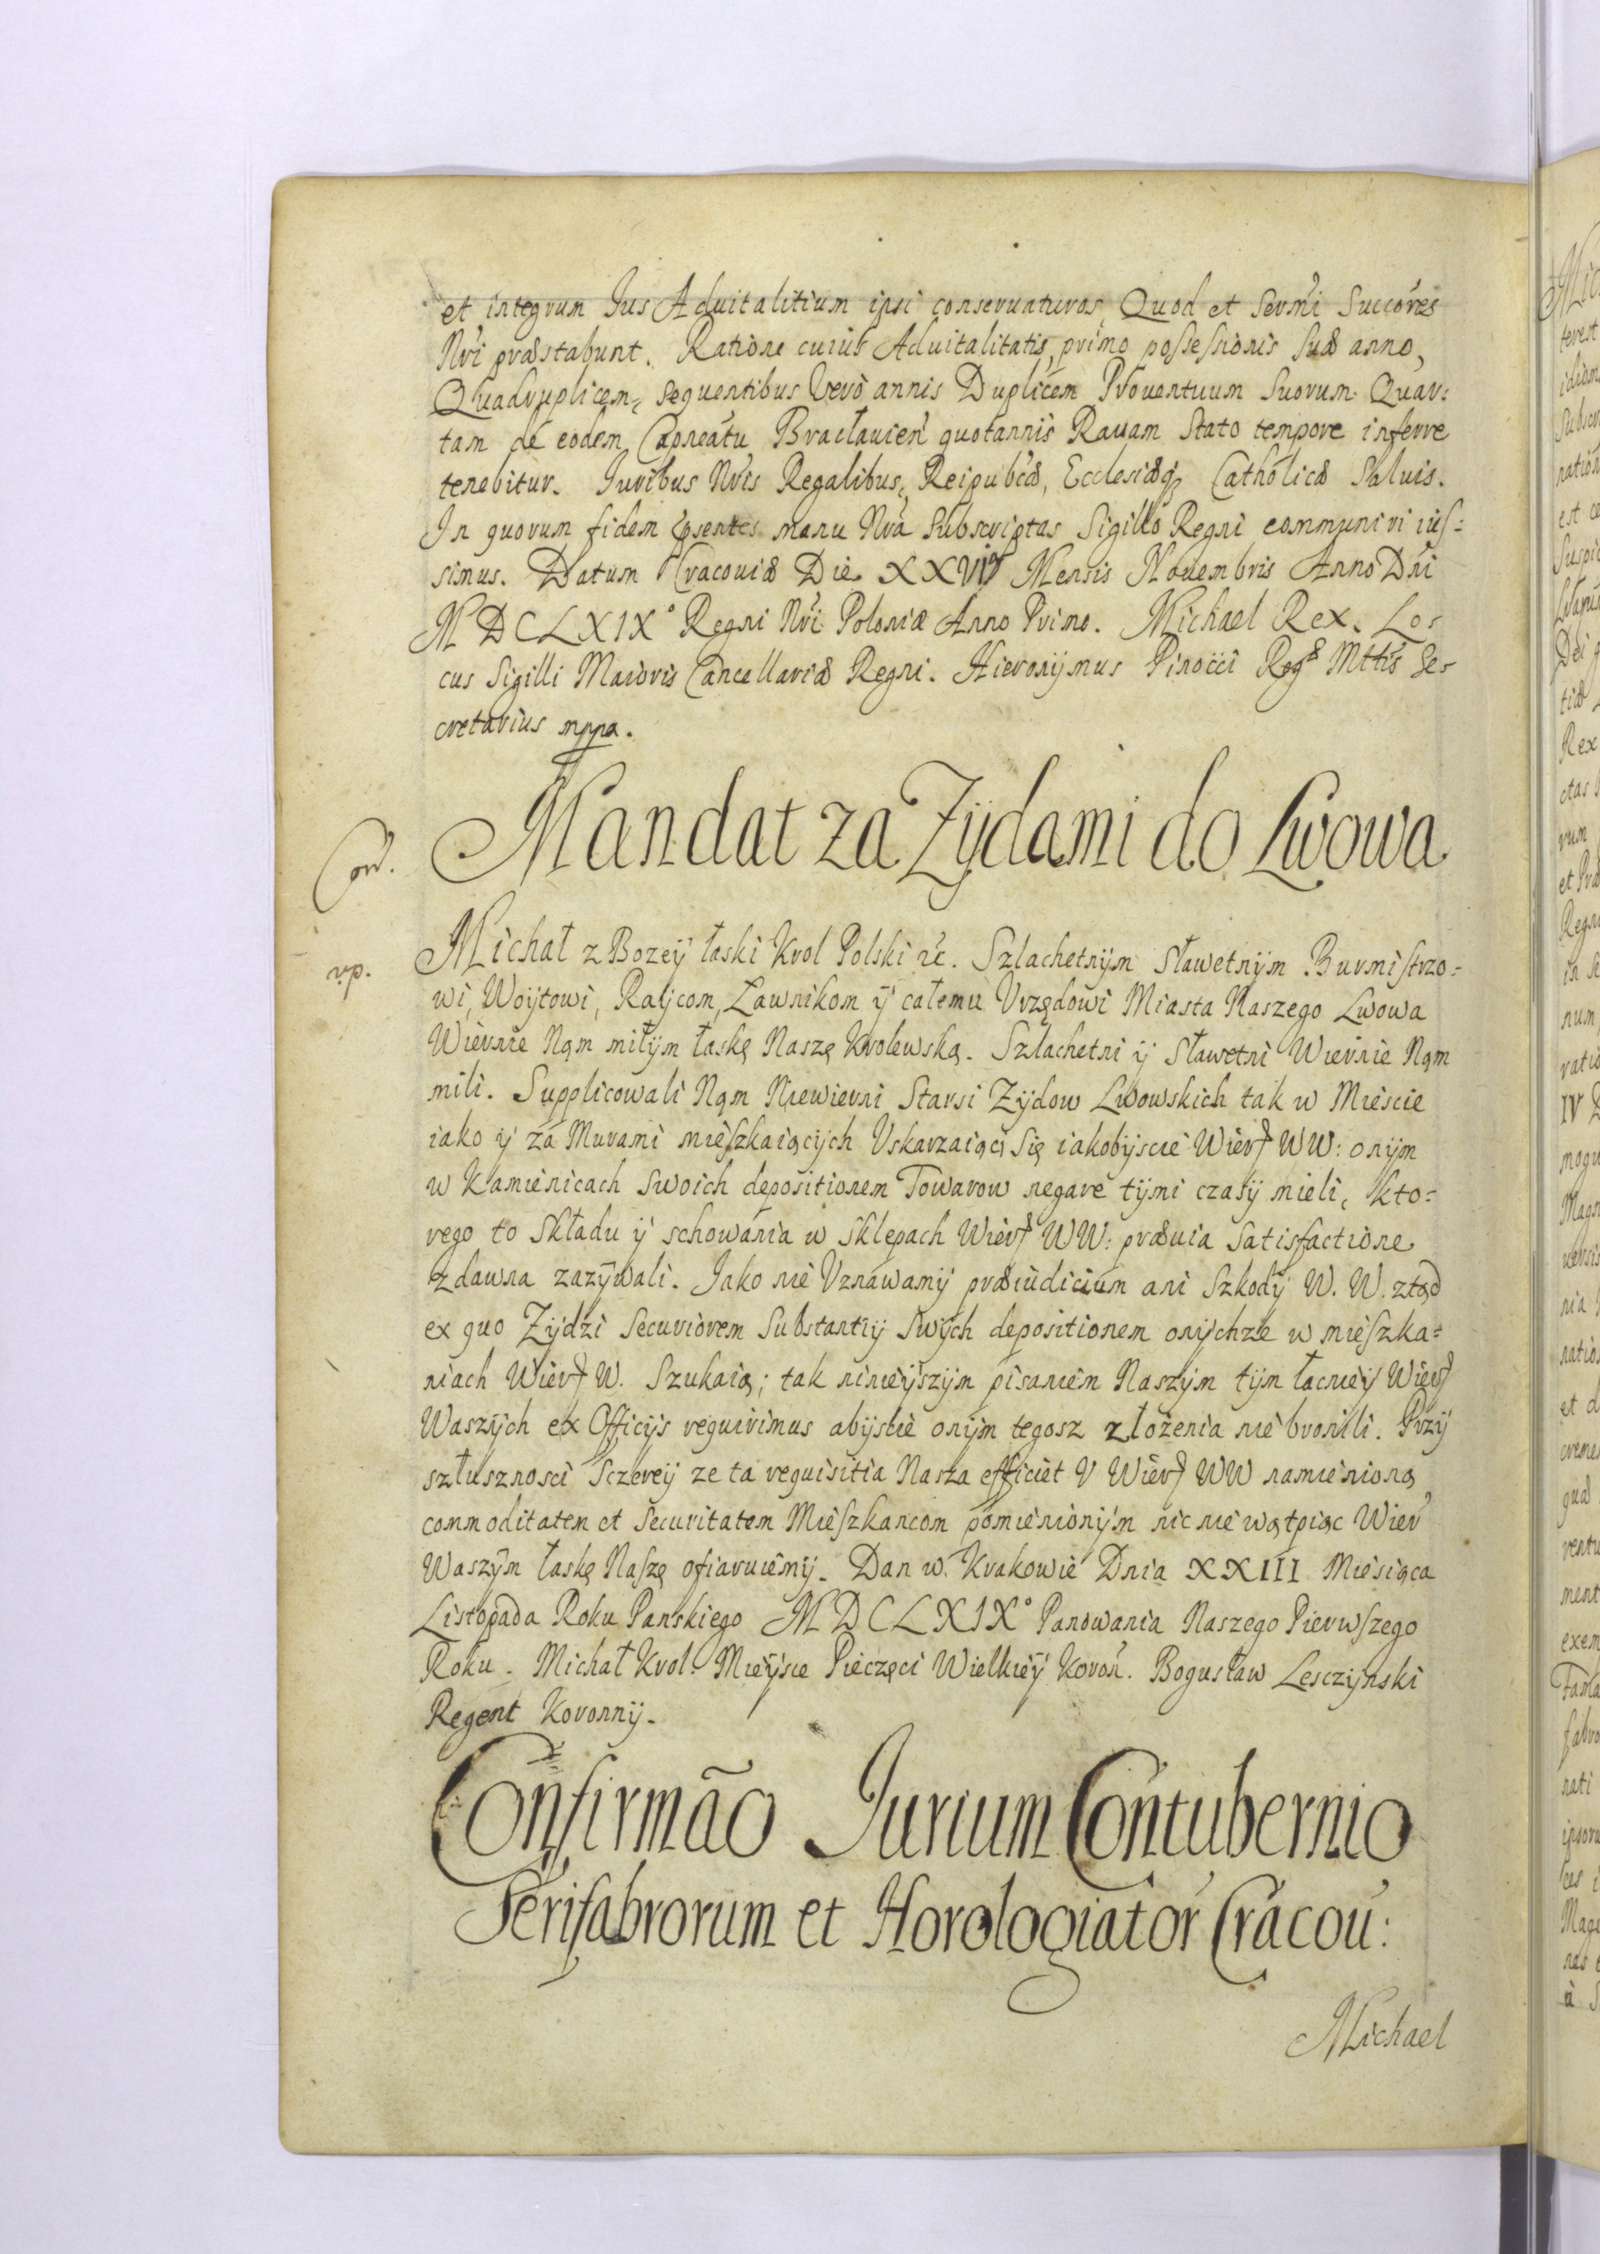 et integrum Jus Aduitalitium ipsi conseruaturos, Quod et Sermi Succores
Nri præstabunt. Ratione cuius Aduitalitatis, primo possessionis Suæ anno,
Quadruplicem, sequentibus Verò annis Duplicem Prouentuum Suorum Quar:
tam de eodem Capneatu Bracłauień quotannis Rauam Stato tempore inferre
tenebitur. Juribus Nris Regalibus, Reipubcæ, Ecclesiæq, Catholicæ Saluis.
In quorum fidem psentes manu Nra Subscriptas Sigillo Regni communiri ius=
simus. Datum Cracouiæ Die XXVI Mensis Nouembris Anno Dni
MDCLXIX° Regni Nri Poloniæ Anno Primo. Michael Rex. Lo-
cus Sigilli Maioris Cancellariæ Regni. Hieronÿmus Pinocci Regæ Mttis Se-
cretarius mppa.
Mandat za Zÿdami do Lwowa
Michał z Bozeÿ łaski Krol Polski etc. Szlachetnÿm Sławetnÿm Burmistrzo=
wi, Woÿtowi, Raÿcom, Ławnikom ÿ całemu Vrzędowi Miasta Naszego Lwowa
Wiernie Nąm miłÿm łaskę Naszę Krolewską. Szlachetni ÿ Sławetni Wiernie Nąm
mili. Supplicowali Nąm Niewierni Starsi Zÿdow Lwowskich tak w Miescie
iako ÿ za Murami mieszkaiącÿch Vskarzaiąci Się iakobÿscie Wier WW: onÿm
w Kamienicach Swoich depositionem Towarow negare tÿmi czasÿ mieli, kto=
rego to Składu ÿ schowania w Sklepach Wier WW: præuia Satisfactione
zdawna zazÿwali. Jako nie Vznawamÿ præiudicium ani Szkodÿ W. W. ztąd
ex quo Zÿdzi Securiorem Substantiÿ Swÿch depositionem onÿchze w mieszka=
niach Wier W. Szukaią; tak ninieÿszÿm pisaniem Naszÿm tÿm łacnieÿ Wier
Waszÿch ex Officÿs requirimus abÿscie onÿm tegosz złozenia nie bronili. Przÿ
szłusznosci Sczereÿ ze ta requisitia Nasza efficiet V Wier WW namienioną
commoditatem et Securitatem Mieszkancom pomienionÿm nic nie wątpiąc Wier
Waszÿm łaskę Naszę ofiaruiemÿ. Dan w Krakowie Dnia XXIII Miesiąca
Listopada Roku Panskiego MDCLXIX° Panowania Naszego Pierwszego
Roku. Michał Krol. Mieÿsce Pieczęci Wielkieÿ Koroń. Bogusław Lesczÿnski
Regent Koronnÿ.
Confirmão Jurium Contubernio
Serifabrorum et Horologiator Cracou:
Michael